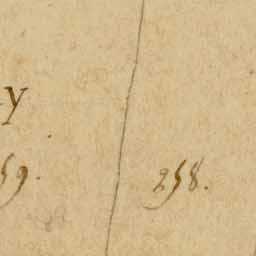 y
59. 258.